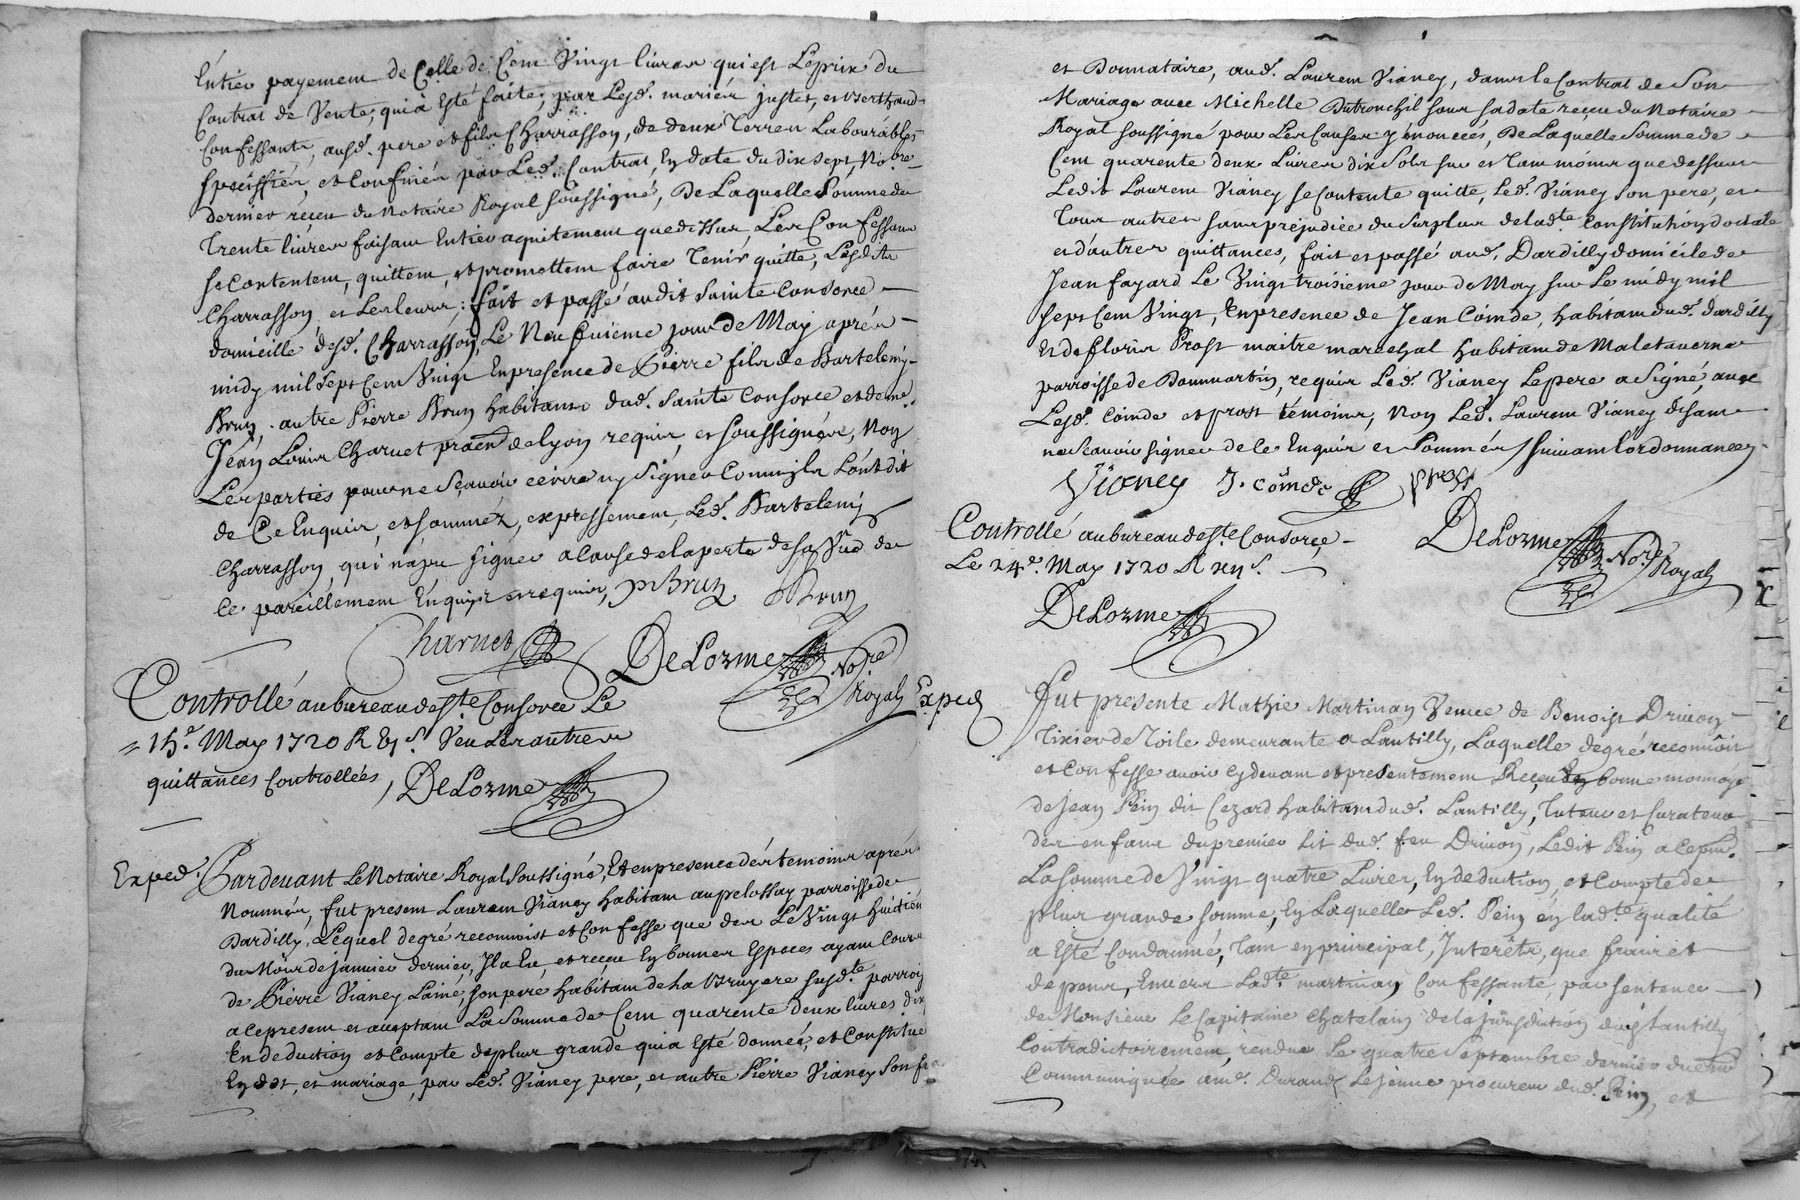 Entier payement de Celle de Cent Vingt livres qui est Leprix du
Contrat de Vente, qui à Esté faite, par Lesd. mariés justet, et Berthaud
Confessants, ausd. pere et fils Charrasson, de deux Terres Labourables
speciffiés, et Confinés par Led. Contrat, En date du dix sept Nobre
dernier reçeu du Notaire Royal soussigné, De Laquelle Somme de
Trente livres faisant Entier aquitement que dessus, Les Confessants
se Contentent, quittent, et promettent faire Tenir quitte, Lesdits
Charrasson et Les leurs; fait et passé audit Sainte Consorce,
domicille desd. Charrasson, Le Neufvieme jour de May aprés
midy mil Sept Cent Vingt En presence de Pierre fils de Bartelemy
Brun, autre Pierre Brun habitants dud. Sainte Consorce et de me.
Jean Louis Charvet de Lyon requis, et soussignées, Non
Les parties pour ne sçavoir écrire ny Signer Comm'ils L'ont dit
de Ce Enquis, et sommez, expressement, Led. Bartelemy
Charrasson, qui n'a pu signer a Cause de la perte de sa Vuë de
Ce pareillement Enquis et requis, P Brun P Brun
Charvet DeLorme Nore Royal
Controllé au bureau de Ste Consorce Le
15e. May 1720 R Veu Les autres
quittances Controllées, DeLorme
Exped. Pardevant Le Notaire Royal Soussigné, Et en presence des temoins aprés
Nommés, fut present Laurent Vianey habitant au pelossay parroisse de
Dardilly, Lequel degré reconnoist et Confesse que des Le Vingt huitiem
du Mois de janvier dernier, Il a Eu, et reçeu En bonnes Especes ayant Cours
de Pierre Vianey Lainé, son pere habitant de La Bruyere susdte. parroi
a Ce present et aceptant La Somme de Cent quarente deux livres dix
En deduction et Compte de plus grande qui a Esté donnée, et Constituée
En dot, et mariage, par Led. Vianey pere, et autre Pierre Vianey Son
et Donnataire, aud. Laurent Vianey, dans le Contrat de Son
Mariage avec Michelle Dutronchil sous sa date reçeu du Notaire
Royal soussigné pour Les Causes y énoncées, De Laquelle Somme de
Cent quarente deux Livres dix Sols sur et Tant moins que dessus
Ledit Laurent Vianey se Contente quitte, Led. Vianey Son pere, et
Tous autres sans prejudice du Surplus de ladte Constitution dotale
et d'autres quittances, fait et passé aud. Dardilly domicile de
Jean fayard Le Vingt troisieme jour de May sur Le midy mil
Sept Cent Vingt, En presence de Jean Coinde, habitant dud. dardilly
Et de floris Prost maitre marechal habitant de Maletaverne
parroisse de Dommartin, requis Led. Vianey Le pere a Signé, avec
Lesd. Coinde et prost témoins, Non Led. Laurent Vianey disant
ne Scavoir signer de Ce Enquis et Sommés suivant l'ordonnance
Vianey J. coinde prost
Controllé au bureau de Ste Consorce, DeLorme Nore. Royal
Le 24e. May 1720 R
DeLorme
Exped
Fut presente Mathie Martinay Veuve de Benoist Drivon
Tixier de Toile demeurante a Lantilly, Laquelle degré reconnoit
et Confesse avoir cy devant et presentement Reçeu En bonne monnoye
de Jean Pein dit Cezard habitant dud. Lantilly, Tuteur et Curateur
des enfans du premier lit dud. feu Drivon, Ledit Pein a Ce
La Somme de Vingt quatre Livres, En deduction et Compte de
plus grande somme, En Laquelle Led. Pein en ladte. qualité
a Esté Condamné, Tant en principal, Interêts, que frais et
depens, Envers Ladte. martinay Confessante, par sentence
de Monsieur Le Capitaine Chatelain de la jurisdiction dud. Lantilly
Contradictoirement, rendue Le quatre Septembre dernier
Communiquée a me. Durand Le jeune procureur dud. Pein, et